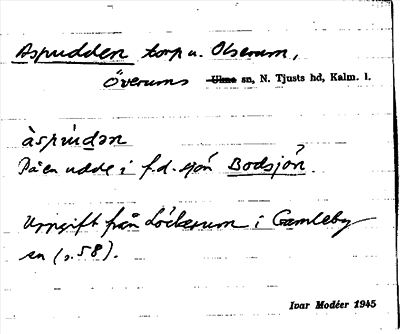 Aspudden torp u. Olserum,
Överums ~~Ukna~~ sn, N. Tjusts hd, Kalm. l.
àspúdən
På en udde i f.d. sjön Bodsjön.
Uppgift från Löckerum i Gamleby
sn (s. 58).
Ivar Modéer 1945